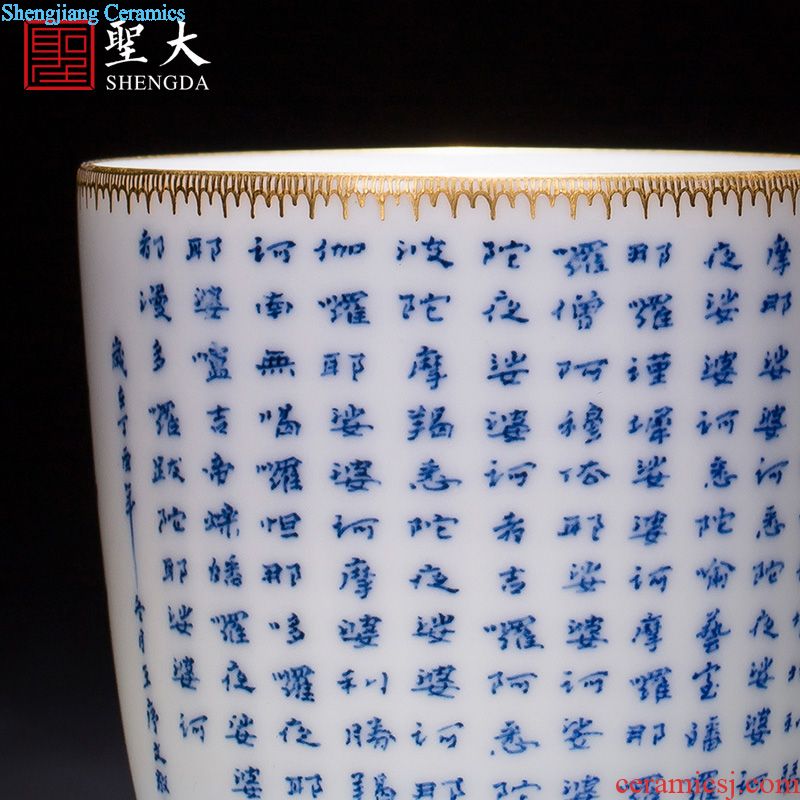 Shengjiang Ceramics
聖大
SHENGDA
摩那娑婆訶悉陀夜娑婆
夜娑婆訶悉陀喻藝室皤囉
那囉謹墀娑婆訶摩囉那
囉僧阿穆佉耶娑婆訶娑婆
陀夜娑婆訶者吉囉阿悉陀
波陀摩羯悉陀夜娑婆訶那
伽囉耶娑婆訶摩婆利勝羯
訶南無喝囉怛那哆囉夜耶
耶婆嚧吉帝爍皤囉夜娑婆
都漫多囉跋陀耶娑婆訶
歲在丁酉年冬月
ceramicsj.com